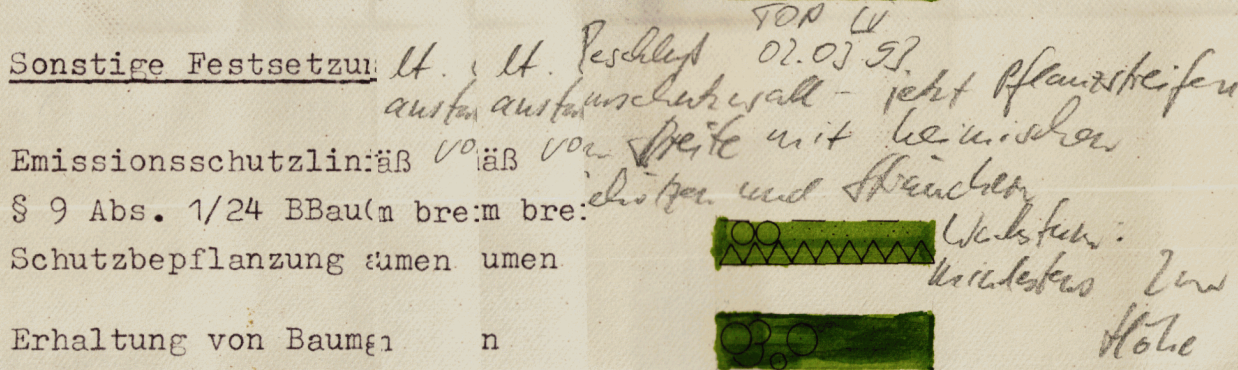 TOP IV
Sonstige Festsetzun lt. lt. Beschluß 02.03.93
anstat anstat mschutzwall – jetzt Pflanzstreifen
Emissionsschutzlini äß vo äß von Breite mit heimischen
§ 9 Abs. 1/24 BBau( m brei m brei ehölzen und Sträuchern
Wachstum:
Schutzbepflanzung a umen umen mindestens 2 m
Erhaltung von Baumg n n Höhe